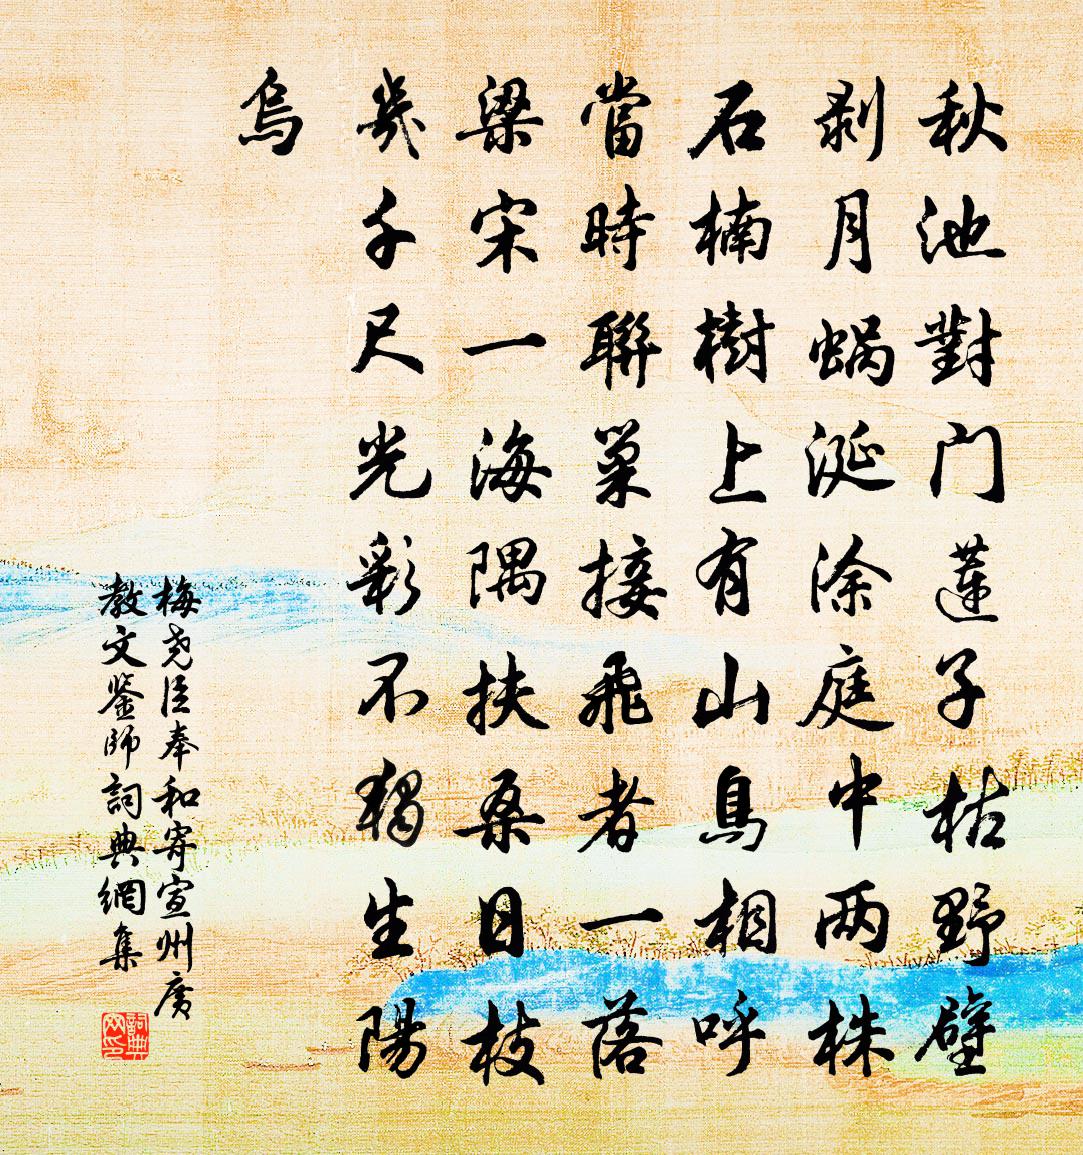 秋池對门蓮子枯野壁
剥月蜗涎涂庭中两株
石楠樹上有山鳥相呼
當時聯巢接飛者一落
梁宋一海隅扶桑日枝
幾千尺光彩不獨生陽
烏
梅尧臣奉和寄宣州廣
教文鉴師詞典網集
詞典
网印